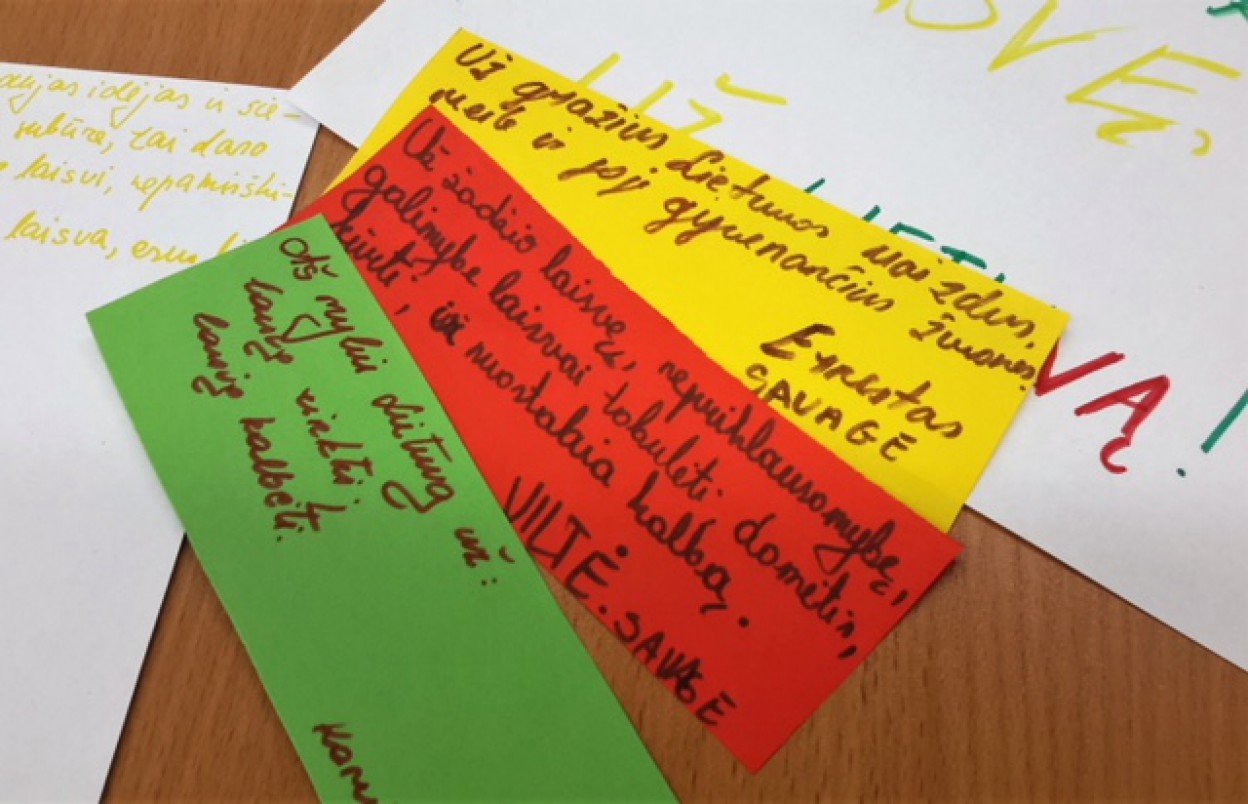 idėjas ir sie-
subūrė, tai daro
laisvi, nepamirški-
laisva, esam
UŽ
VĘ,
LIETUVĄ!
Už gražius Lietuvos vaizdus,
meilę ir joje gyvenančius žmones.
Ernestas
SAVAGE
Už žodžio laisvę, nepriklausomybę,
galimybę laisvai tobulėti, domėtis,
kurti, iš nuostabią kalbą.
VILTĖ. SAVAGE
Aš myliu Lietuvą už:
laisvę rinktis,
laisvę kalbėti.